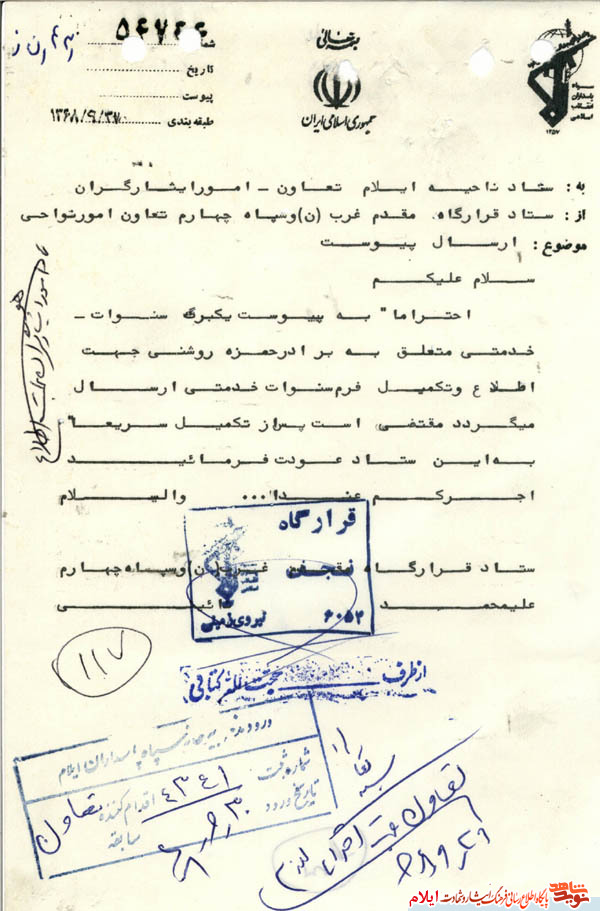 بسمه تعالی
جمهوری اسلامی ایران
سپاه
پاسداران
انقلاب
اسلامی
۱۳۵۷
شماره ۵۴۷۴۴
تاریخ
پیوست
طبقه بندی
به : ستاد ناحیه ایلام تعاون - امورایثارگران
از : ستاد قرارگاه مقدم غرب (ن) وسپاه چهارم تعاون امورنواحی
موضوع : ارسال پیوست
سلام علیکم
احتراما" به پیوست یکبرگ سنوات -
خدمتی متعلق به برادرحمزه روشنی جهت
اطلاع وتکمیل فرم سنوات خدمتی ارسال
میگردد مقتضی است پس از تکمیل سریعا"
به این ستاد عودت فرمائید
اجرکم عندا... والسلام
ستاد قرارگاه مقدم غرب (ن) وسپاه چهارم
علیمحمد
قرارگاه
نجف
۶۰۵۲
نیروی زمینی
از طرف
۱۱۷
ورود به سپاه پاسداران ایلام
شماره ثبت ۴۳۴۱
تاریخ ورود
اقدام کننده تعاون
سابقه
تعاون جهت اقدام لازم
شاهد
نوید
پایگاه اطلاع رسانی فرهنگ ایثار و شهادت ایلام